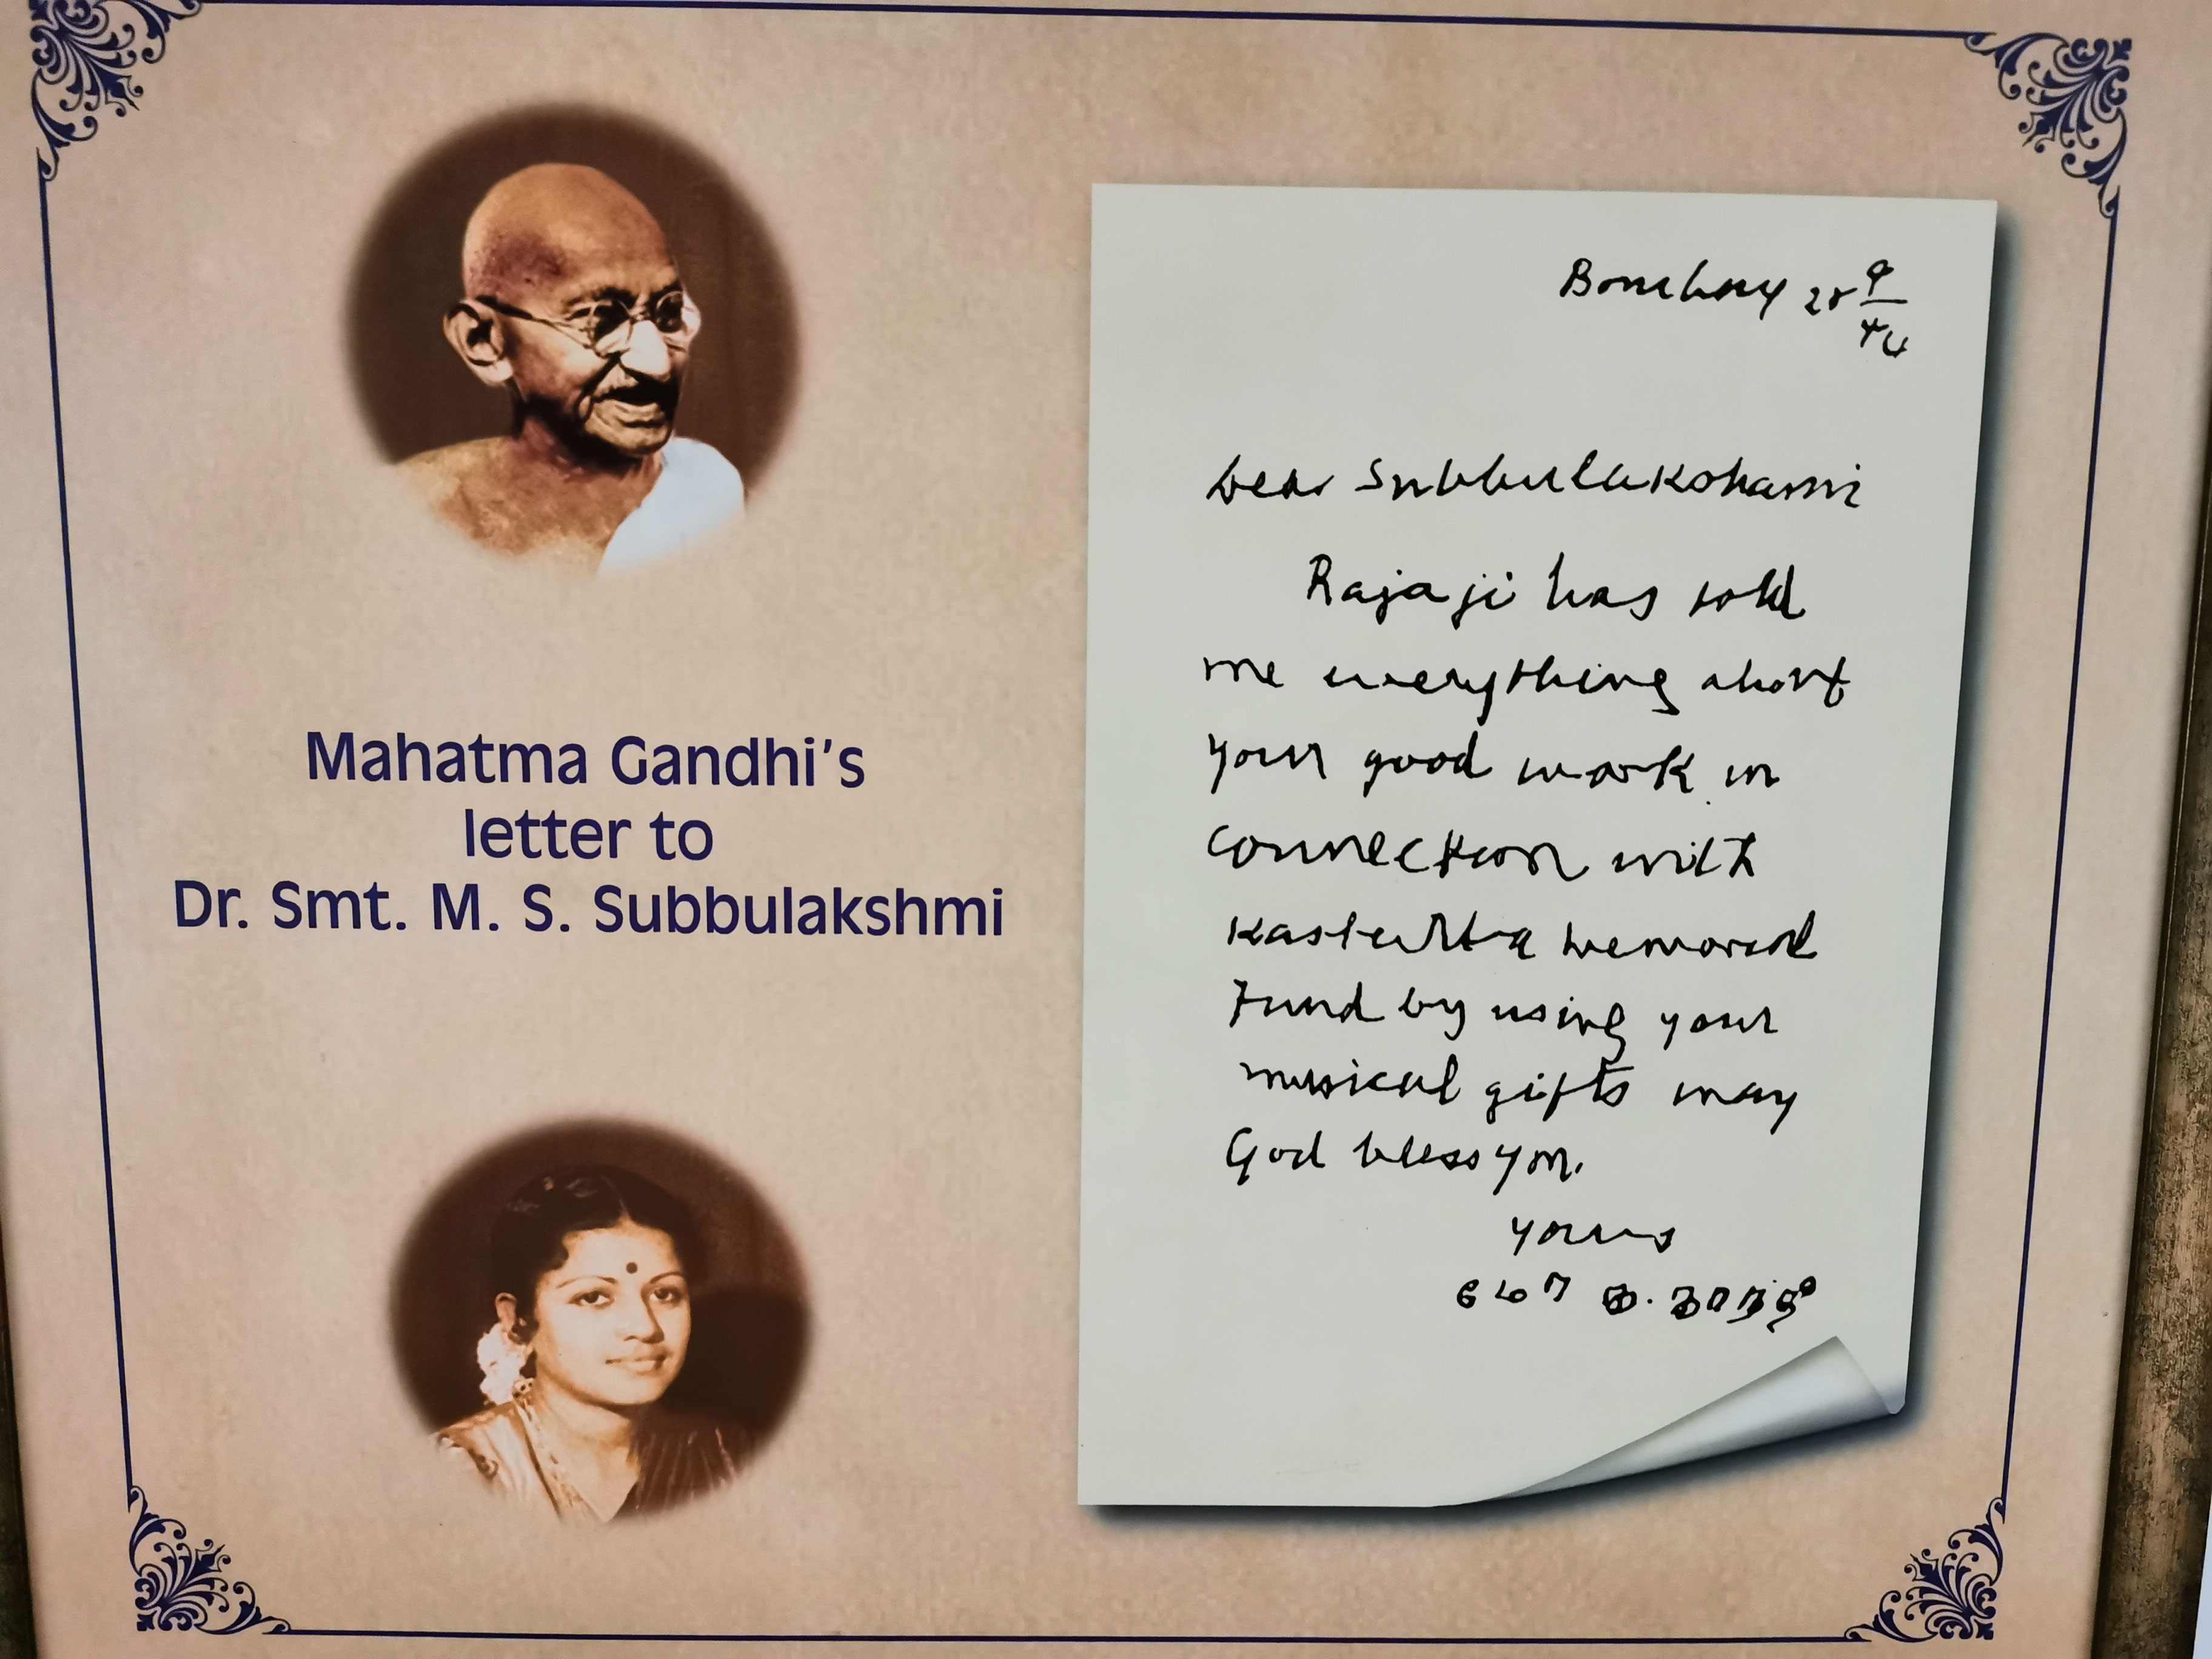 Mahatma Gandhi's
letter to
Dr. Smt. M. S. Subbulakshmi
Bombay 28 9/44
Dear Subbulakshami
Rajaji has told
me everything about
your good work in
connection with
Kasturba memorial
Fund by using your
musical gifts may
God bless you.
yours
மோ க. காந்தி